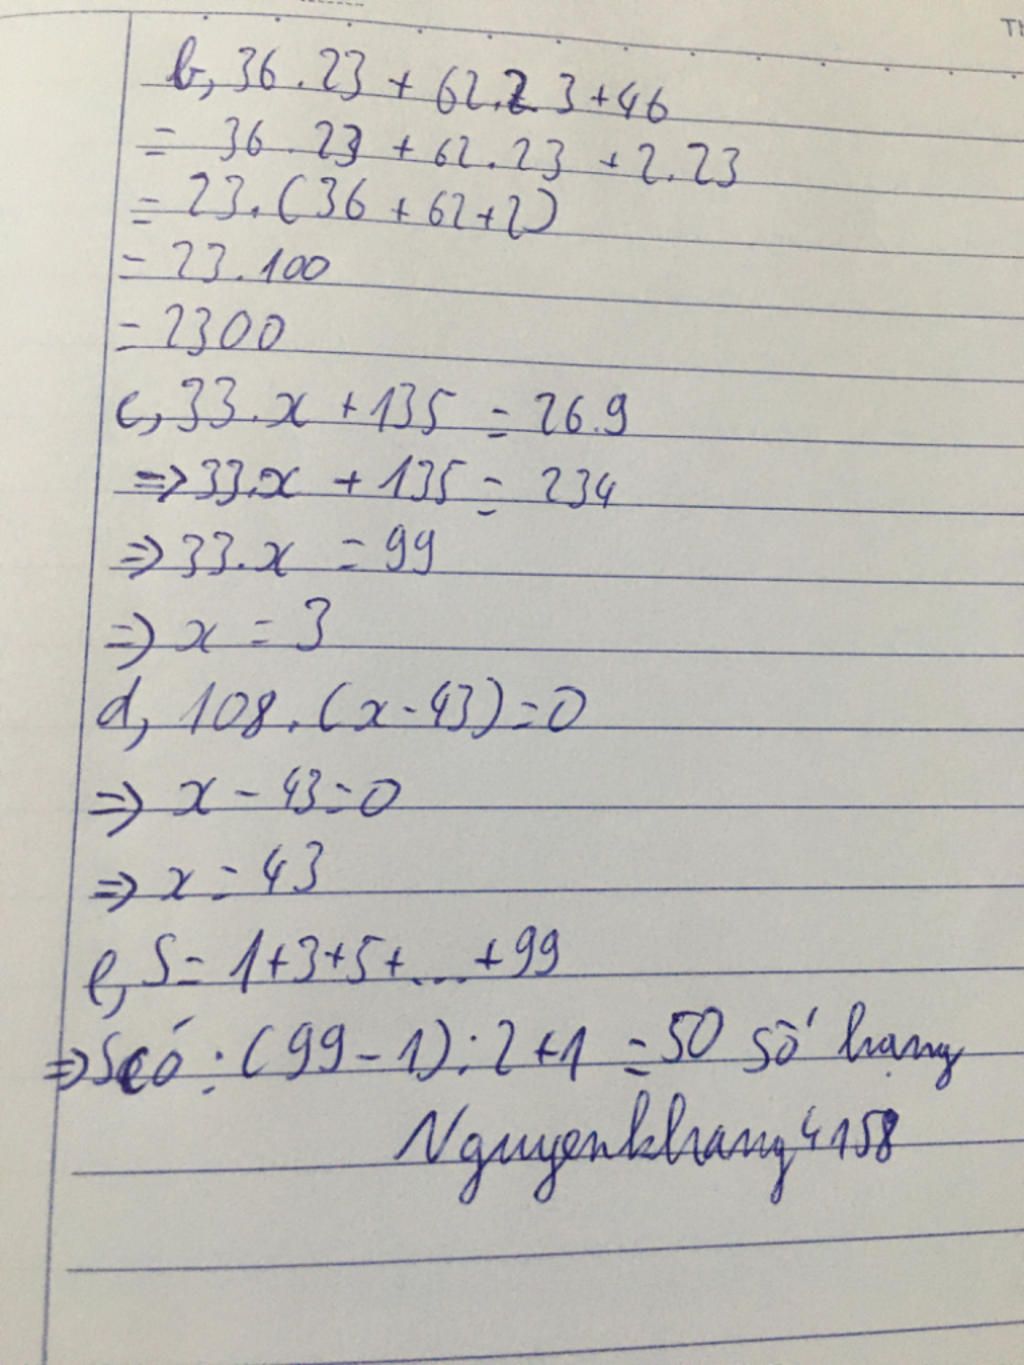 Th
b, 36.23 + 62.23 + 46
= 36.23 + 62.23 + 2.23
= 23.(36 + 62 + 2)
= 23.100
= 2300
c, 33.x + 135 = 26.9
=> 33.x + 135 = 234
=> 33.x = 99
=> x = 3
d, 108.(x - 43) = 0
=> x - 43 = 0
=> x = 43
e, S = 1+3+5+...+99
=> S có : (99 - 1) : 2 + 1 = 50 số hạng
Nguyenkhang4158